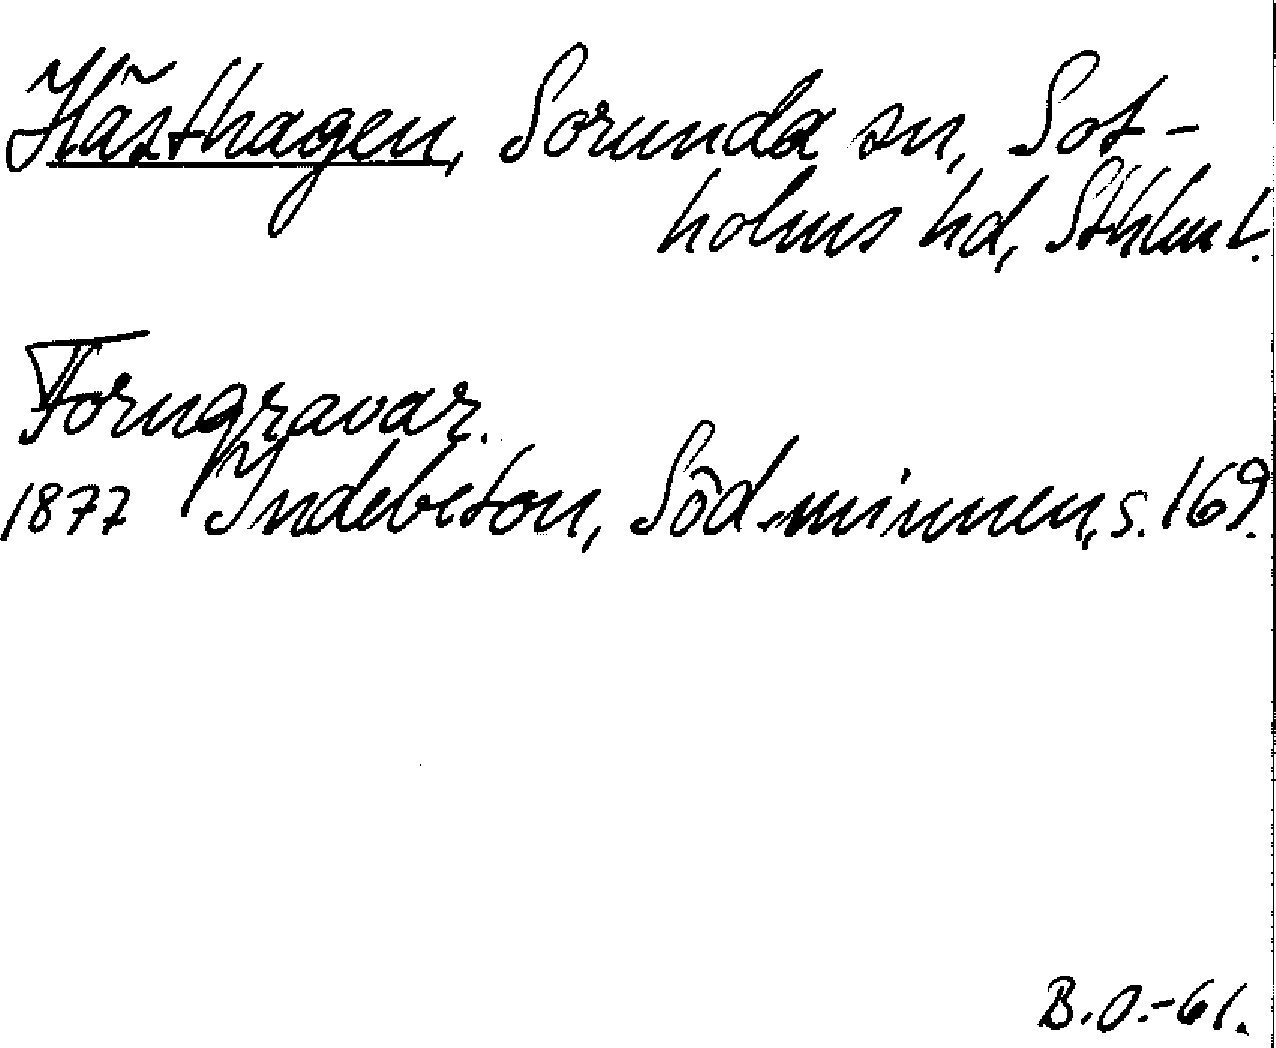 Hästhagen, Sorunda sn, Sot-
holms hd, Sthlm l.
Forngravar.
1877 Indebetou, Söd. minnen, s. 169.
B.O.-61.